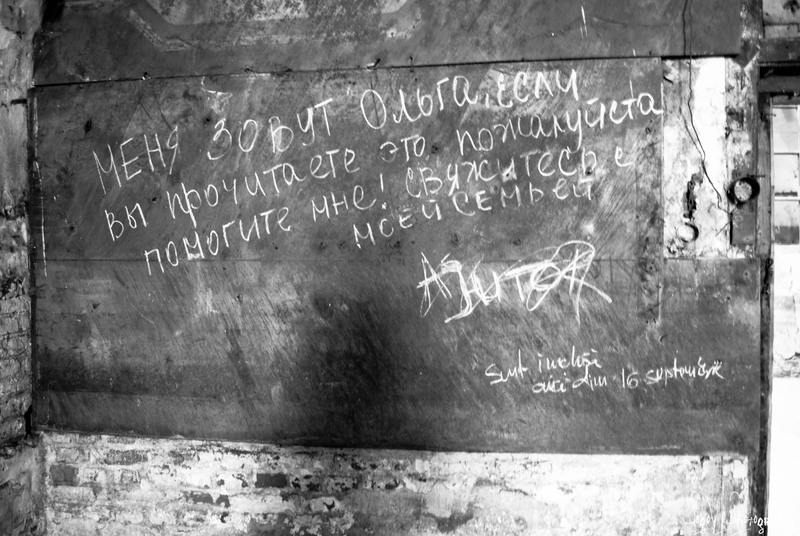 МЕНЯ ЗОВУТ ОЛЬГА, ЕСЛИ
ВЫ ПРОЧИТАЕТЕ ЭТО ПОЖАЛУЙСТА
ПОМОГИТЕ МНЕ! СВЯЖИТЕСЬ С
МОЕЙ СЕМЬЕЙ
Sunt inchiși
aici din 16